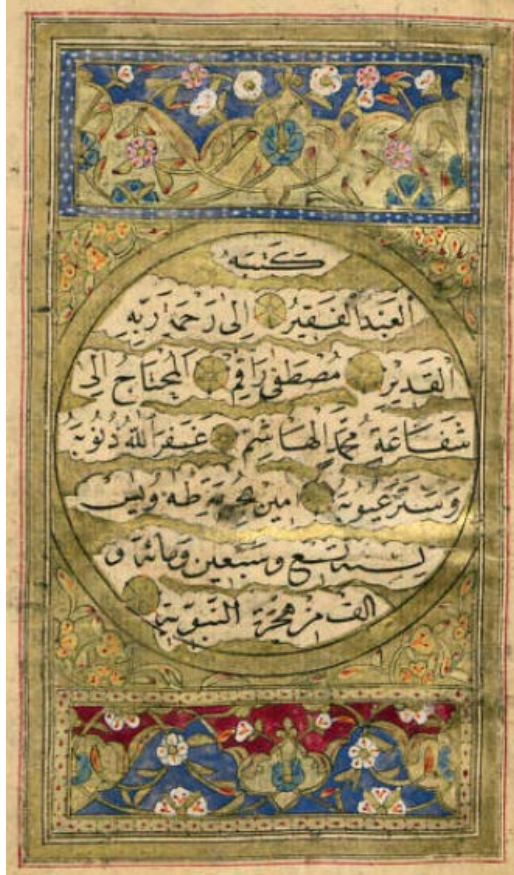 كتبه
العبد الفقير إلى رحمة ربه
القدير مصطفى راقم المحتاج إلى
شفاعة محمد الهاشم غفر الله ذنوبه
وستر عيوبه امين بحرمة طه ويس
لسنة تسع وسبعين ومائة و
الف من هجرة النبوية